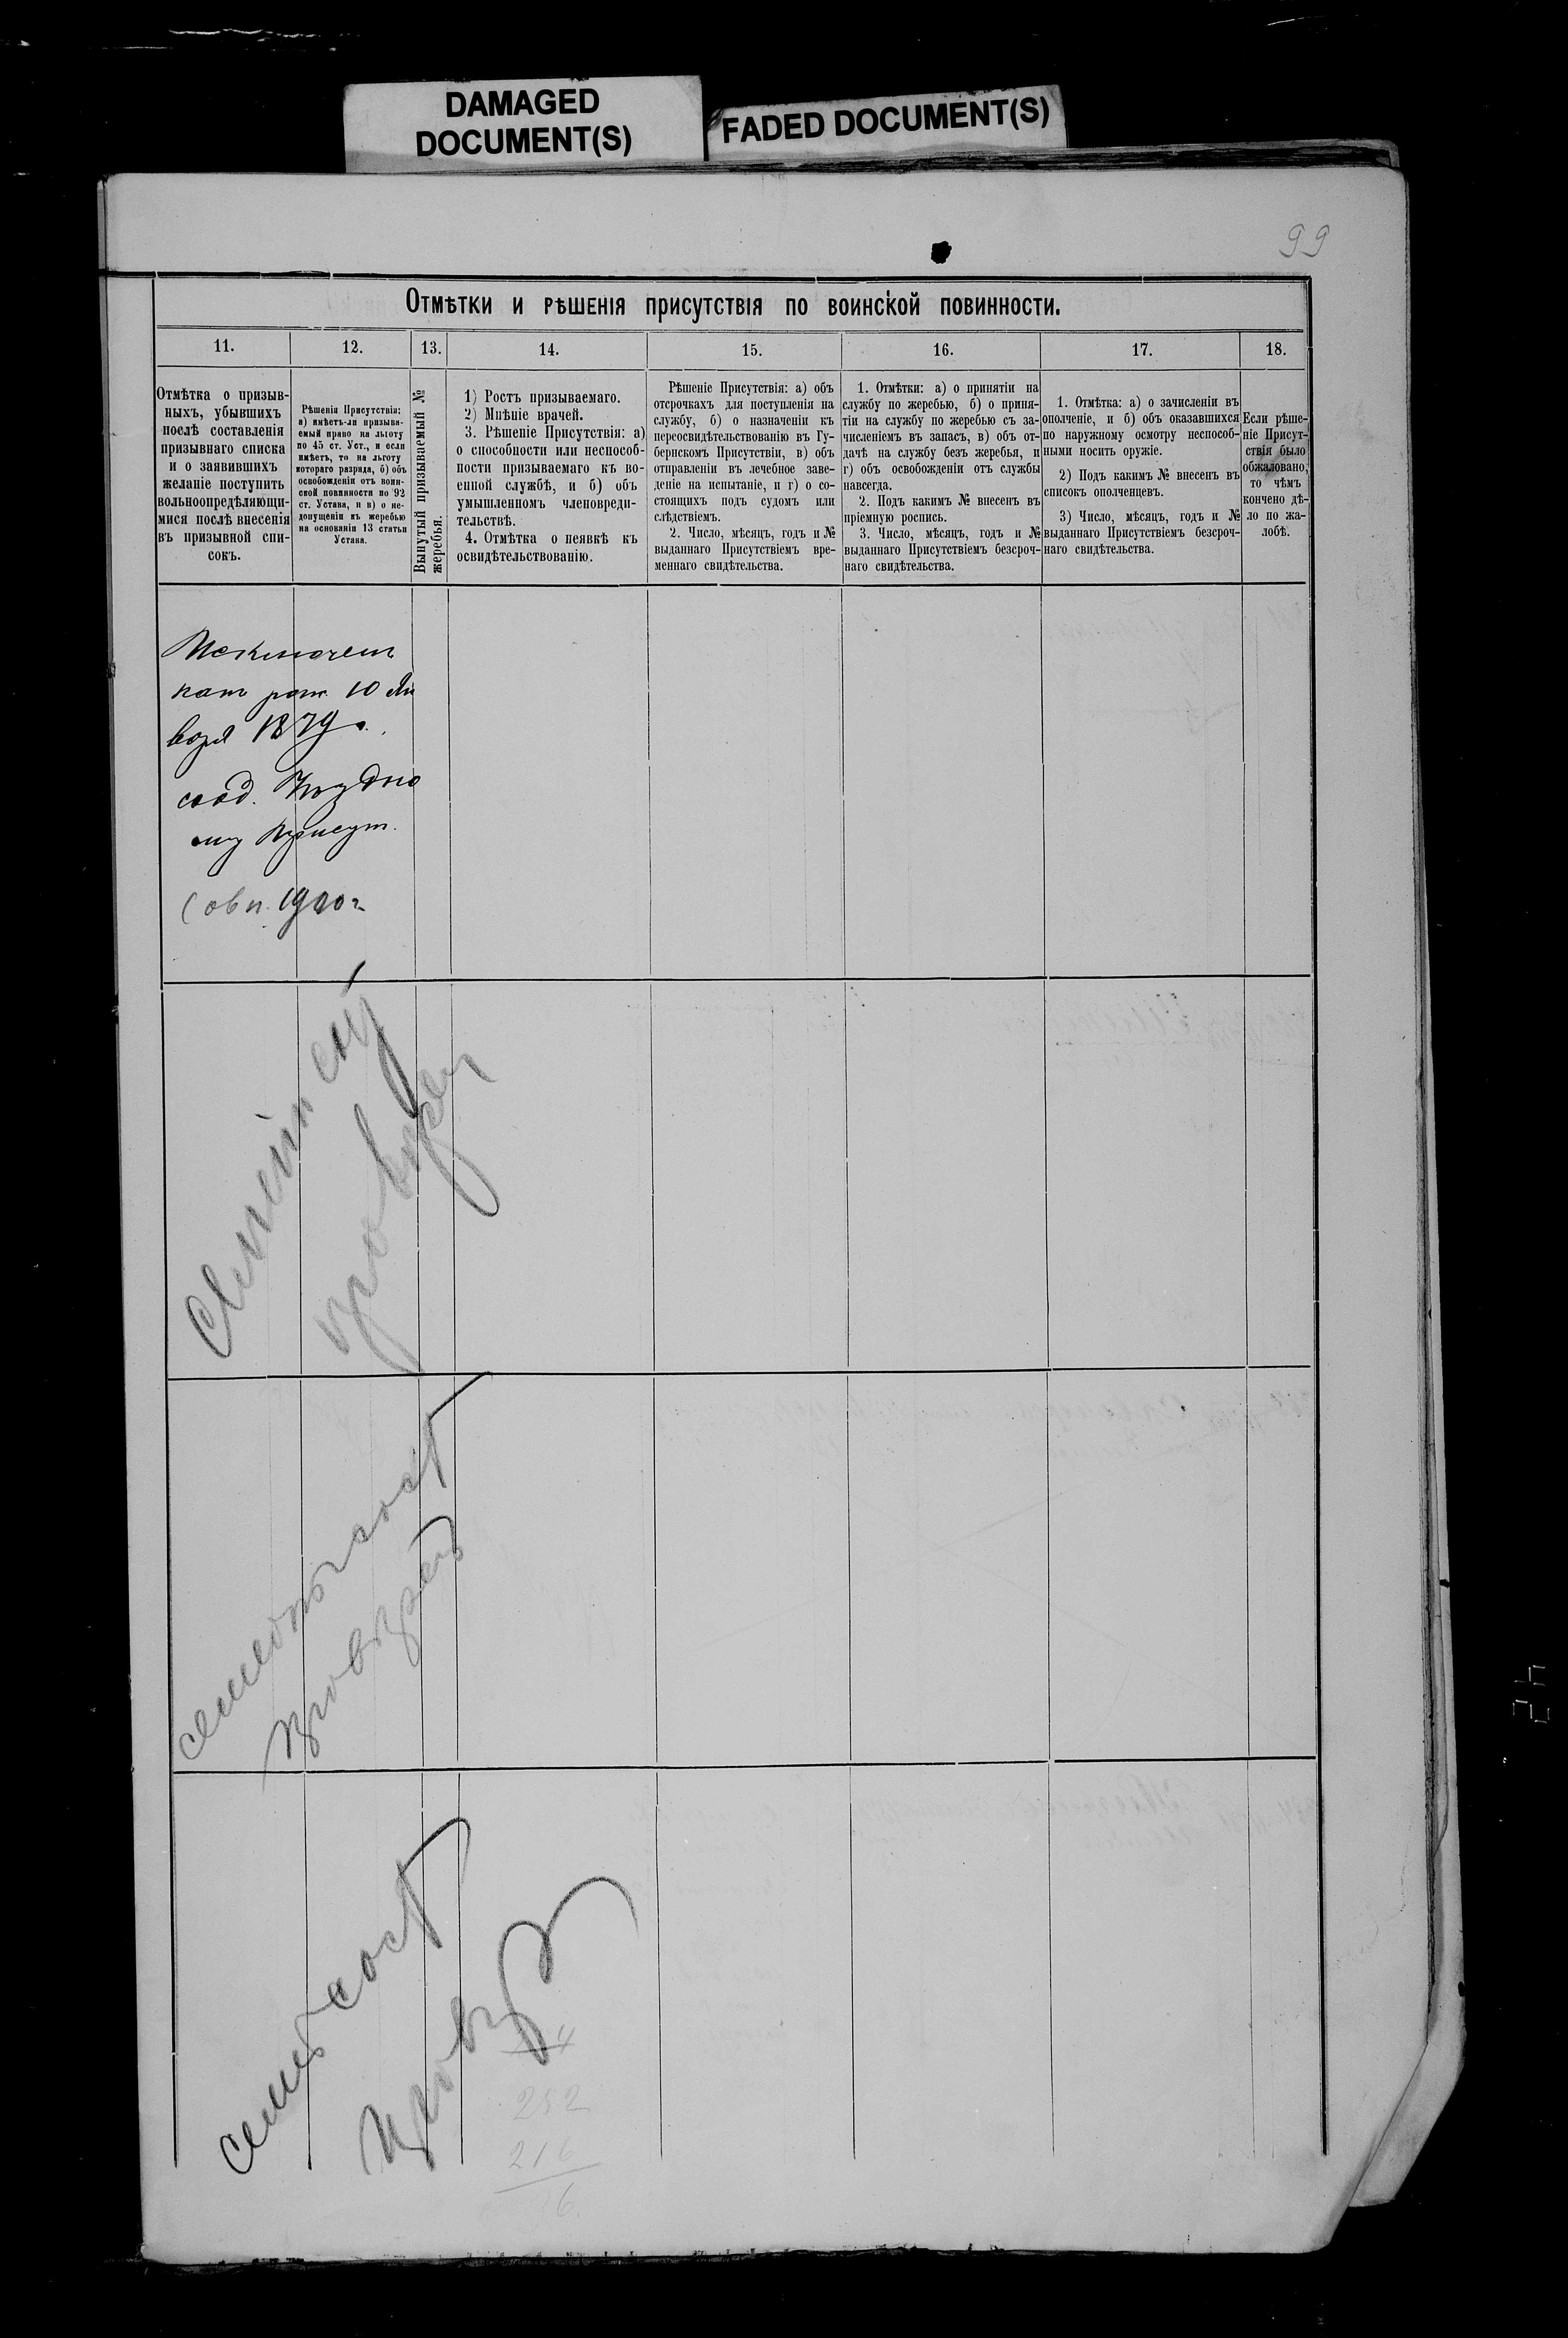 DAMAGED
DOCUMENT(S)
FADED DOCUMENT(S)
99
Отмѣтки и рѣшенія присутствія по воинской повинности.
11.
12.
13.
14.
15.
16.
17.
18.
Отмѣтка о призыв-
ныхъ, убывшихъ
послѣ составленія
призывнаго списка
и о заявившихъ
желаніе поступить
вольноопредѣляющи-
мися послѣ внесенія
въ призывной спи-
сокъ.
Рѣшенія Присутствія:
а) имѣетъ-ли призыва-
емый право на льготу
по 45 ст. Уст., и если
имѣетъ, то на льготу
котораго разряда, б) объ
освобожденіи отъ воин-
ской повинности по 92
ст. Устава, и в) о не-
допущеніи къ жеребью
на основаніи 13 статьи
Устава.
Вынутый призываемый №
жеребья.
1) Ростъ призываемаго.
2) Мнѣніе врачей.
3. Рѣшеніе Присутствія: а)
о способности или неспособ-
ности призываемаго къ во-
енной службѣ, и б) объ
умышленномъ членовреди-
тельствѣ.
4. Отмѣтка о неявкѣ къ
освидѣтельствованію.
Рѣшеніе Присутствія: а) объ
отсрочкахъ для поступленія на
службу, б) о назначеніи къ
переосвидѣтельствованію въ Гу-
бернскомъ Присутствіи, в) объ
отправленіи въ лечебное заве-
деніе на испытаніе, и г) о со-
стоящихъ подъ судомъ или
слѣдствіемъ.
2. Число, мѣсяцъ, годъ и №
выданнаго Присутствіемъ вре-
меннаго свидѣтельства.
1. Отмѣтки: а) о принятіи на
службу по жеребью, б) о приня-
тіи на службу по жеребью съ за-
численіемъ въ запасъ, в) объ от-
дачѣ на службу безъ жеребья, и
г) объ освобожденіи отъ службы
навсегда.
2. Подъ какимъ № внесенъ въ
пріемную роспись.
3. Число, мѣсяцъ, годъ и №
выданнаго Присутствіемъ безсроч-
наго свидѣтельства.
1. Отмѣтка: а) о зачисленіи въ
ополченіе, и б) объ оказавшихся
по наружному осмотру неспособ-
ными носить оружіе.
2) Подъ какимъ № внесенъ въ
списокъ ополченцевъ.
3) Число, мѣсяцъ, годъ и №
выданнаго Присутствіемъ безсроч-
наго свидѣтельства.
Если рѣше-
ніе Присут-
ствія было
обжаловано,
то чѣмъ
кончено дѣ-
ло по жа-
лобѣ.
Исключенъ
10 Ян
варя 1879 г.
сооб. Уѣздно
му Присут.
1900 г
провѣрен
провѣрен
семей сост
провѣр
252
216